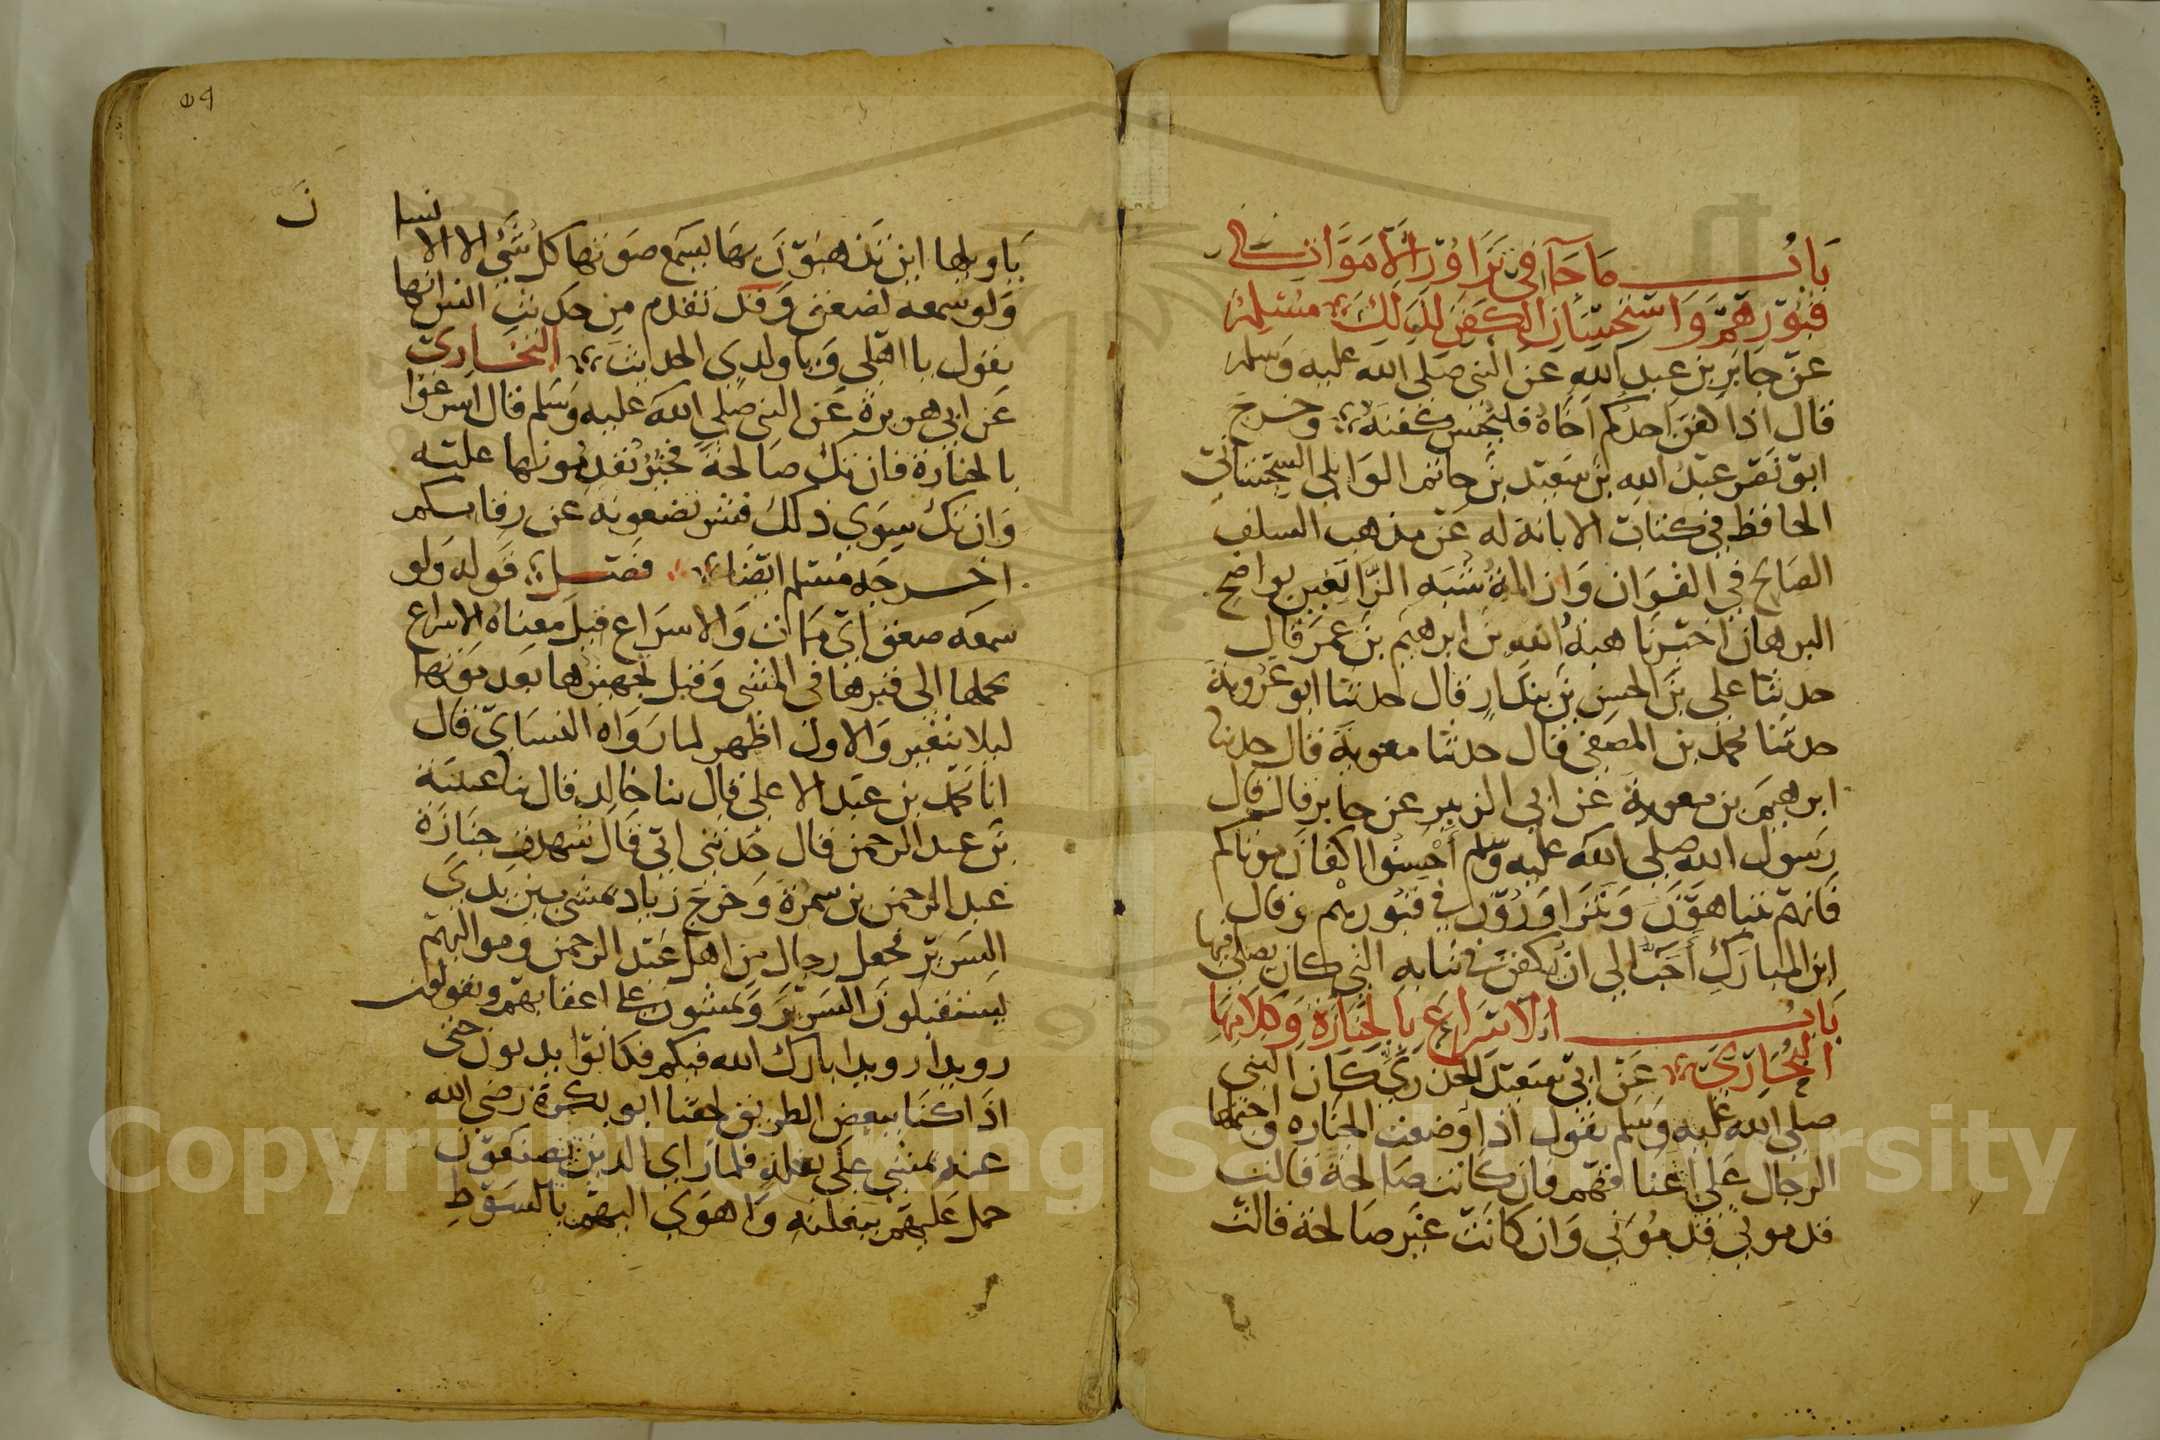 باب ما جا في تزاور الاموات في
قبورهم واستحسان الكفن لذلك مسلم
عن جابر بن عبد الله عن النبي صلى الله عليه وسلم
قال اذا كفن احدكم اخاه فليحسن كفنه وخرج
ابو نصر عبد الله بن سعيد بن حاتم الوايلي السجستاني
الحافظ في كتاب الابانة له عن مذهب السلف
الصالح في القران وازالة شبه الزايغين بواضح
البرهان اخبرنا هبة الله بن ابرهيم بن عمر قال
حدثنا علي بن الحسن بن بندار قال حدثنا ابو عروبة
حدثنا محمد بن المصفى قال حدثنا معوية قال حدثنا
ابرهيم بن معوية عن ابي الزبير عن جابر قال قال
رسول الله صلى الله عليه وسلم احسنوا اكفان موتاكم
فانهم يتباهون ويتزاورون في قبورهم وقال
ابن المبارك احب الي ان يكفن في ثيابه التي كان يصلي فيها
باب الاسراع بالجنازة وكلامها
البخاري عن ابي سعيد الخدري كان النبي
صلى الله عليه وسلم يقول اذا وضعت الجنازه واحتملها
الرجال على اعناقهم فان كانت صالحة قالت
قدموني قدموني وان كانت غير صالحة قالت
04
ياويلها اين تذهبون بها يسمع صوتها كل شي الا الانسان
ولو سمعه لصعق وقد تقدم من حديث انس انها
يقول يا اهلي ويا ولدي الحديث البخاري
عن ابي هريرة عن النبي صلى الله عليه وسلم قال اسرعوا
بالجنازة فان تك صالحة فخير تقدمونها عليه
وان تك سوى ذلك فشر تضعونه عن رقابكم
اخرجه مسلم ايضا فصل قوله ولو
سمعه صعق اي مات والاسراع قيل معناه الاسراع
بحملها الى قبرها في المشي وقيل تجهيزها بعد موتها
ليلا يتغير والاول اظهر لما رواه النساي قال
انا محمد بن عبد الاعلى قال نا خالد قال نا عيينة
بن عبد الرحمن قال حدثني ابي قال شهدت جنازة
عبد الرحمن بن سمرة وخرج زياد يمشي بين يدي
السرير فجعل رجال من اهل عبد الرحمن ومواليهم
يستقبلون السرير ويمشون على اعقابهم ويقولون
رويدا رويدا بارك الله فيكم فكانوا يدبون حتى
اذا كنا ببعض الطريق لحقنا ابو بكرة رضي الله
عنه يمشي على بغلة فلما راى الذين يصنعون
حمل عليهم ببغلته واهوى اليهم بالسوط
Copyright © King Saud University